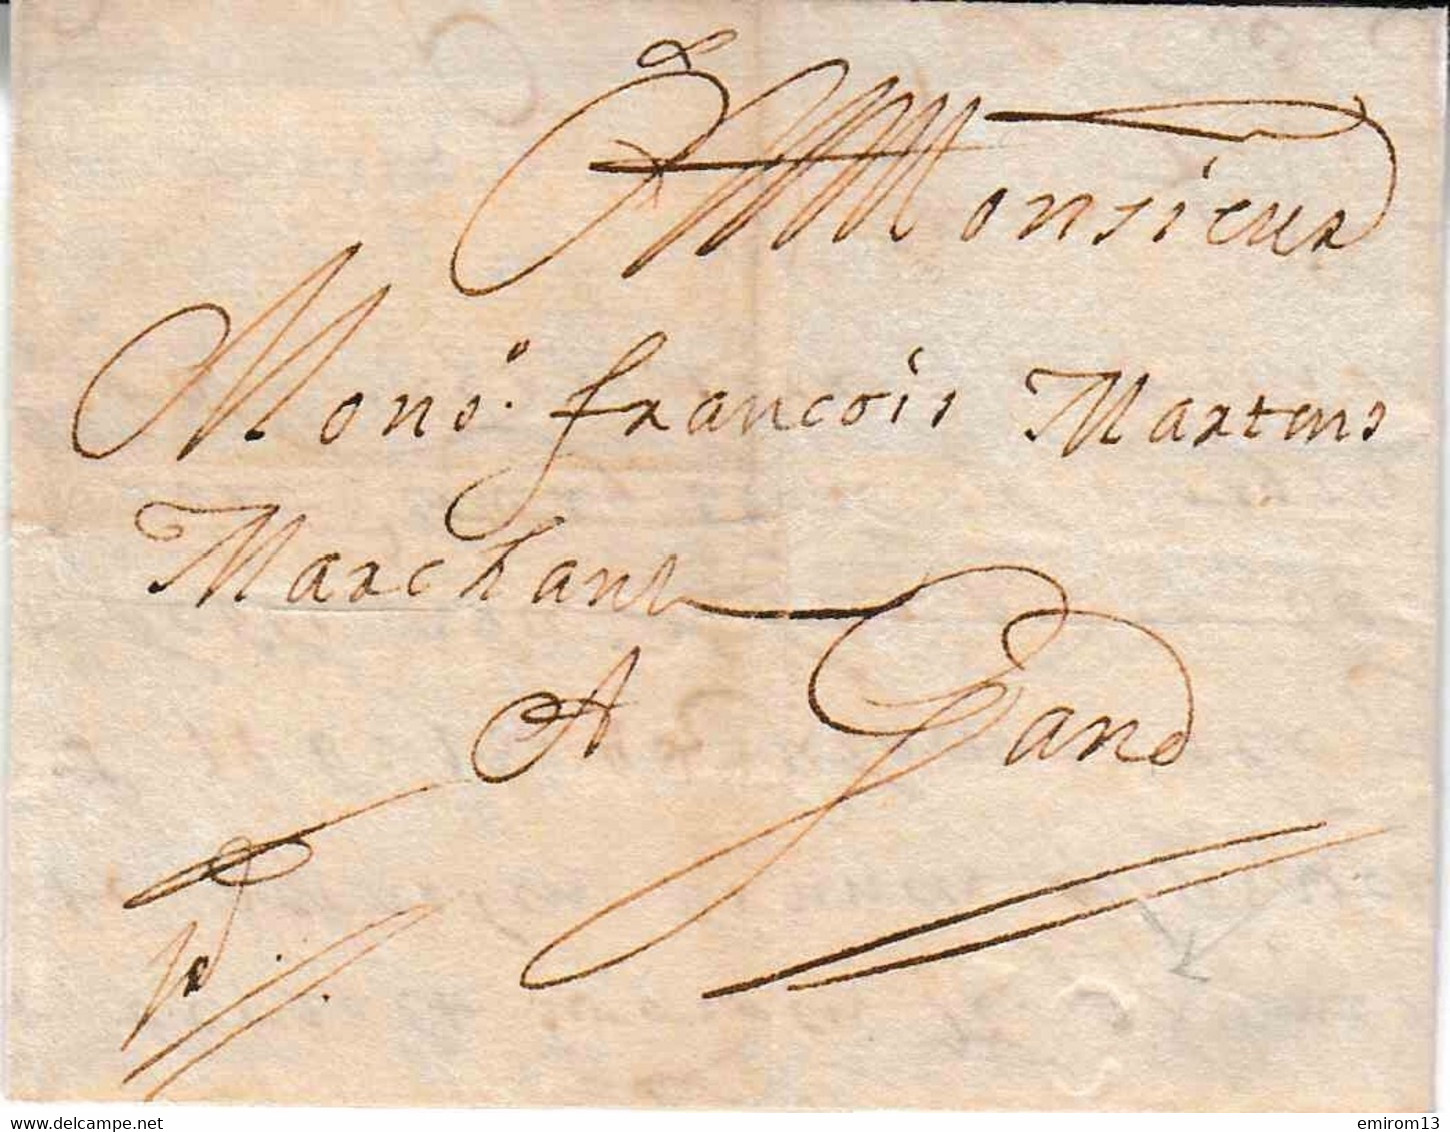 Monsieur
Monsr. francois Martens
Marchant
A Gand
www.delcampe.net
emirom13